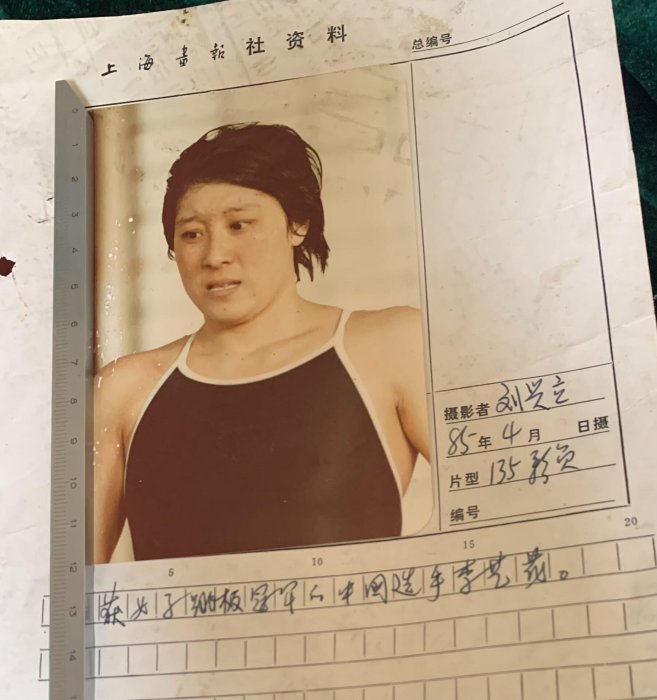 上海畫報社资料
总编号
摄影者 刘兴立
85年4月 日摄
片型 135彩负
编号
5 10 15 20
获女子跳板冠军的中国选手李艺花。
0 1 2 3 4 5 6 7 8 9 10 11 12 13 14